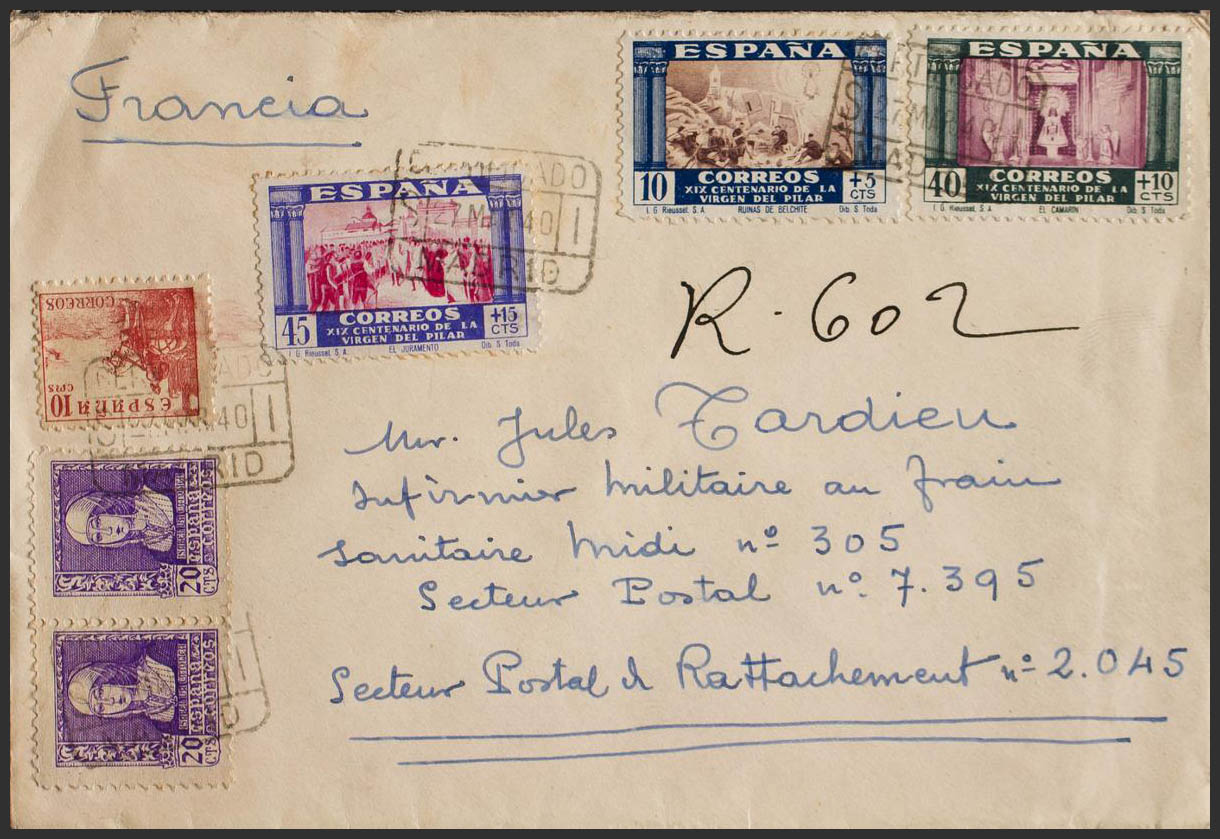 Francia
ESPAÑA
10
CORREOS
+5
CTS
XIX CENTENARIO DE LA
VIRGEN DEL PILAR
I. G. Rieusset. S. A. RUINAS DE BELCHITE Dib. S. Toda
ESPAÑA
40
CORREOS
+10
CTS
XIX CENTENARIO DE LA
VIRGEN DEL PILAR
I. G. Rieusset. S. A. EL CAMARIN Dib. S. Toda
ESPAÑA
45
CORREOS
+15
CTS
XIX CENTENARIO DE LA
VIRGEN DEL PILAR
I. G. Rieusset. S. A. EL JURAMENTO Dib. S. Toda
MADRID
R. 602
CORREOS
ESPAÑA 10
CTS
Mr. Jules Tardieu
Infirmier Militaire au train
Sanitaire Midi nº 305
Secteur Postal nº. 7.395
Secteur Postal de Rattachement nº 2.045
20
CTS
españa
correos
20
CTS
españa
correos